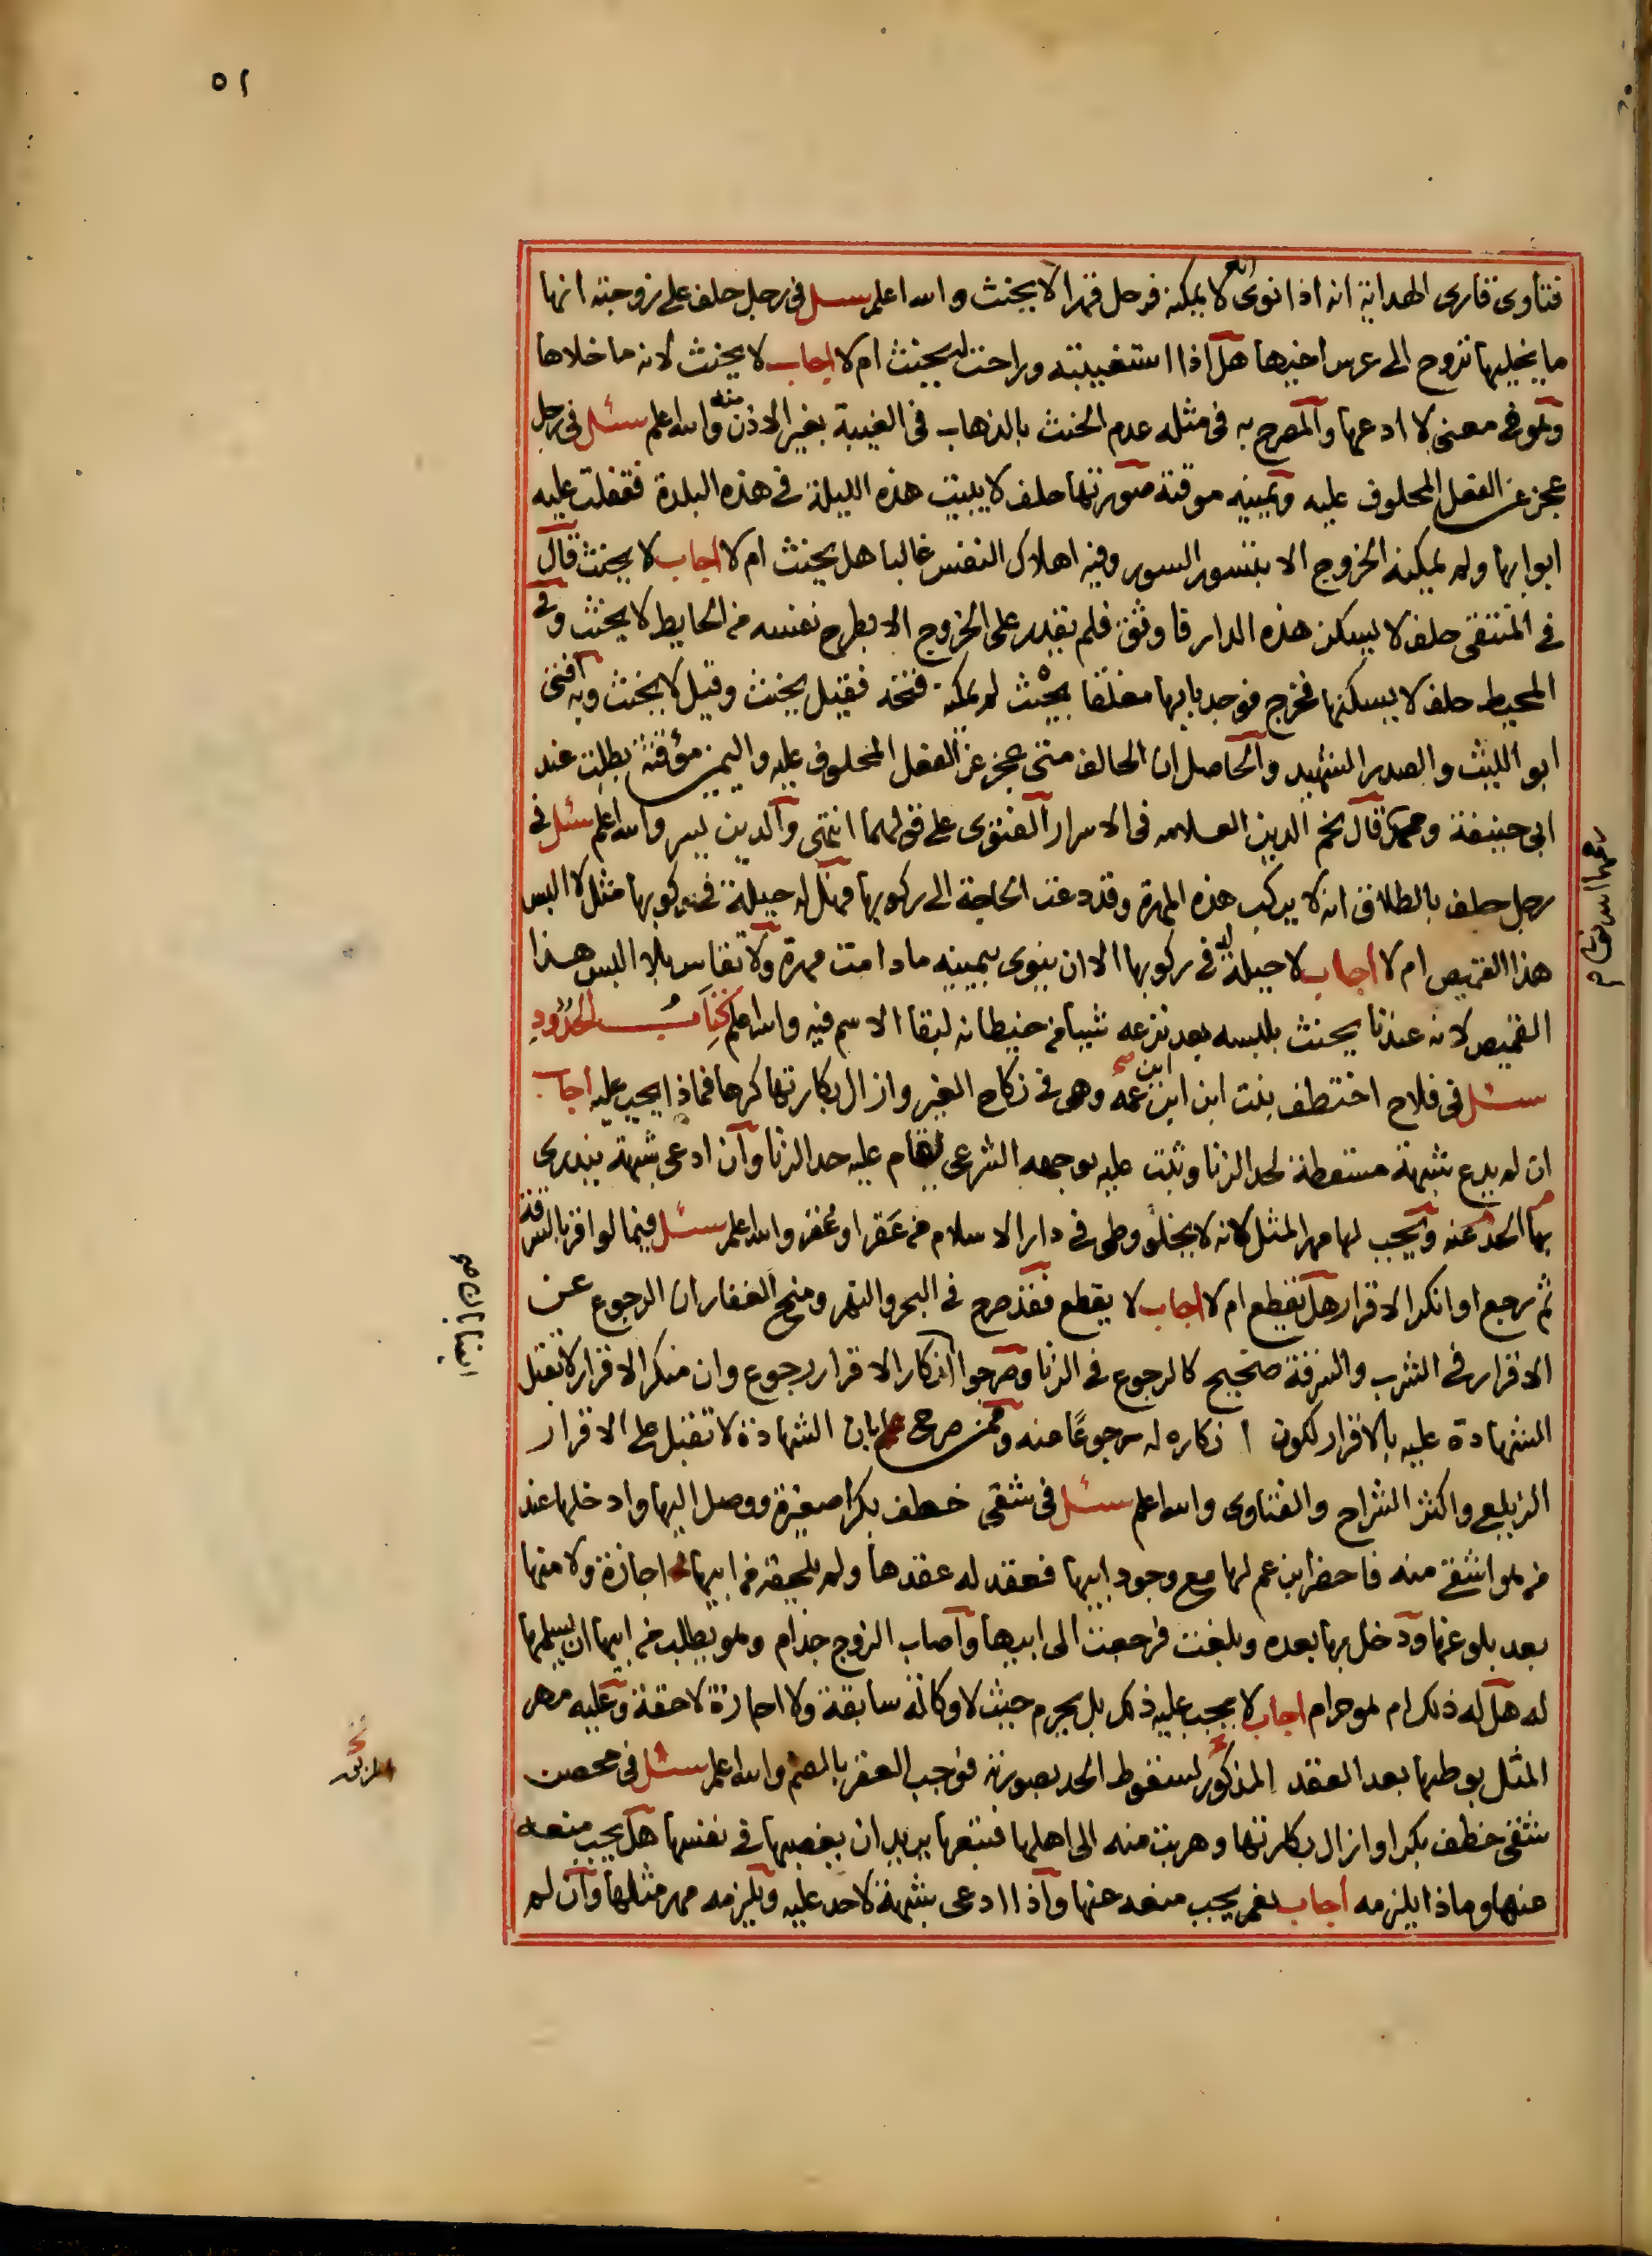 ٥١
فتاوى قارى الهداية انه اذا نوى انه لا يمكنه فرحل قهرا لا يحنث والله اعلم سئل فى رجل حلف على زوجته انها
ما يخليها تروح الى عرس اخيها هل اذا استغيبته وراحت يحنث ام لا اجاب لا يحنث لانه ما خلاها
وهو فى معنى لا ادعها والمصرح به فى مثله عدم الحنث بالذهاب فى الغيبة بغير الاذن منه والله اعلم سئل فى رجل
عجز عن الفعل المحلوف عليه ويمينه موقتة صورتها حلف لا يبيت هذه الليلة فى هذه البلدة فقفلت عليه
ابوابها ولم يمكنه الخروج الا بتسور السور وفيه اهلاك النفس غالبا هل يحنث ام لا اجاب لا يحنث قال
فى المنتقى حلف لا يسكن هذه الدار فاوثق فلم يقدر على الخروج الا بطرح نفسه من الحايط لا يحنث وفى
المحيط حلف لا يسكنها فخرج فوجد بابها مغلقا بحيث لم يمكنه فتحه فقيل يحنث وقيل لا يحنث وبه افتى
ابو الليث والصدر الشهيد والحاصل ان الحالف متى عجز عن الفعل المحلوف عليه واليمين مؤقتة بطلت عند
ابى حنيفة ومحمد قال نجم الدين العلامه فى الاسرار الفتوى على قولهما انتهى والدين يسر والله اعلم سئل فى
رجل حلف بالطلاق انه لا يركب هذه المهرة وقد دعت الحاجة الى ركوبها فهل له حيلة فى ركوبها مثل لا البس
هذا القميص ام لا اجاب لا حيلة له فى ركوبها الا ان ينوى بيمينه ما دامت مهرة ولا تقاس بلا البس هذا
القميص لانه عندنا يحنث بلبسه بعد نزعه شيبا من خيطانه لبقا الاسم فيه والله اعلم كتاب الحدود
سئل فى فلاح اختطف بنت ابن ابن عمه وهى فى نكاح الغير وازال بكارتها كرها فماذا يجب عليه اجاب
ان لم يدع شبهة مسقطة لحد الزنا وثبت عليه بوجهه الشرعى يقام عليه حد الزنا وان ادعى شبهة يندرى
بها الحد عنه ويجب لها مهر المثل لانه لا يخلو وطى فى دار الاسلام من عقر او عفر والله اعلم سئل فيما لو اقر بالسرقة
ثم رجع او انكر الاقرار هل يقطع ام لا اجاب لا يقطع فقد صرح فى البحر والنهر ومنح الغفار ان الرجوع عن
الاقرار فى الشرب والسرقة صحيح كالرجوع فى الزنا وصرحوا انكار الاقرار رجوع وان منكر الاقرار لا تقبل
الشهادة عليه بالاقرار لكون انكاره له رجوعا منه وممن صرح بان الشهادة لا تقبل على الاقرار
الزيلعى واكثر الشراح والفتاوى والله اعلم سئل فى شقى خطف بكرا صغيرة ووصل اليها وادخلها عند
من هو اشقى منه فاحضر ابن عم لها مع وجود ابيها فعقد له عقدها ولم يلحقه من ابيها اجازة ولا منها
بعد بلوغها ودخل بها بعده وبلغت فرجعت الى ابيها واصاب الزوج جذام وهو يطلب من ابيها ان يسلمها
له هل له ذلك ام هو حرام اجاب لا يجب عليه ذلك بل يحرم حيث لا وكالة سابقة ولا اجازة لاحقة وعليه مهر
المثل بوطئها بعد العقد المذكور لسقوط الحد بصورته فوجب العقر بالضم والله اعلم سئل فى محصن
شقى خطف بكرا وازال بكارتها وهربت منه الى اهلها فتبعها يريد ان يغصبها فى نفسها هل يجب منعه
عنها وماذا يلزمه اجاب نعم يجب منعه عنها واذا ادعى شبهة لاحد عليه ويلزمه مهر مثلها وان لم